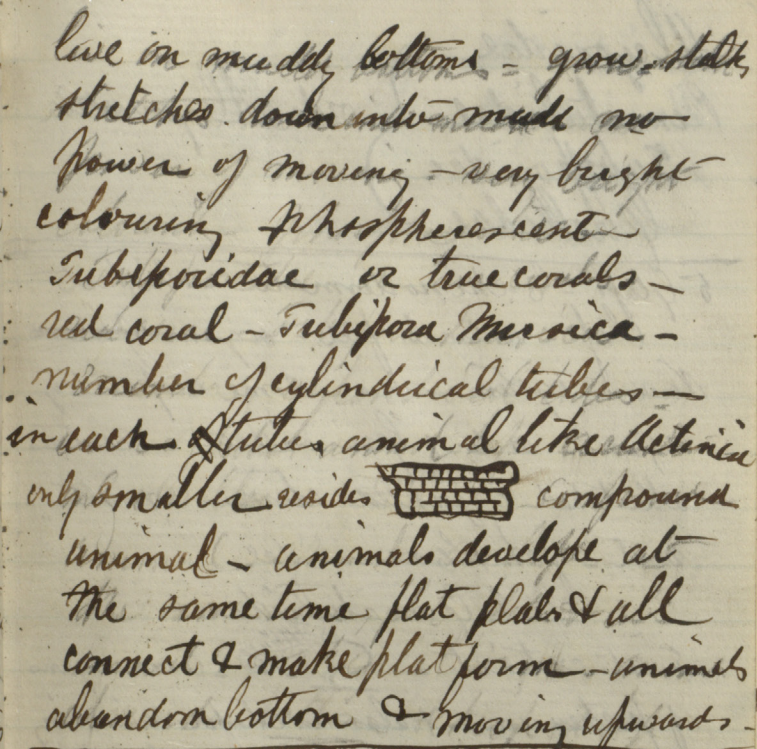 live on muddy bottoms - grow - stalk
stretches down into mud no
power of moving - very bright
colouring phospherescent
Tubiporidae or true corals -
red coral - Tubipora Musica -
number of cylindrical tubes -
in each tube animal like Actinia
only smaller resides compound
animal - animals develope at
the same time flat plats & all
connect & make platform - animals
abandom bottom & moving upwards -